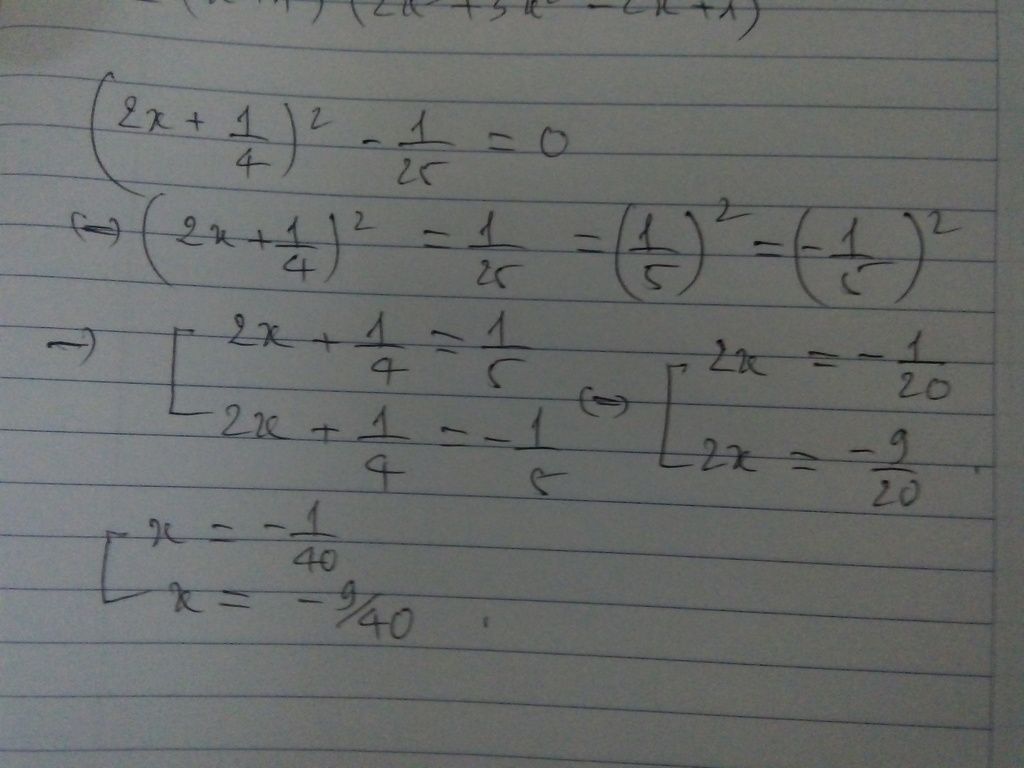 (2x + 1/4)² - 1/25 = 0
(=) (2x + 1/4)² = 1/25 = (1/5)² = (-1/5)²
-) [ 2x + 1/4 = 1/5 (=) [ 2x = -1/20
2x + 1/4 = -1/5 2x = -9/20
[ x = -1/40
x = -9/40 .